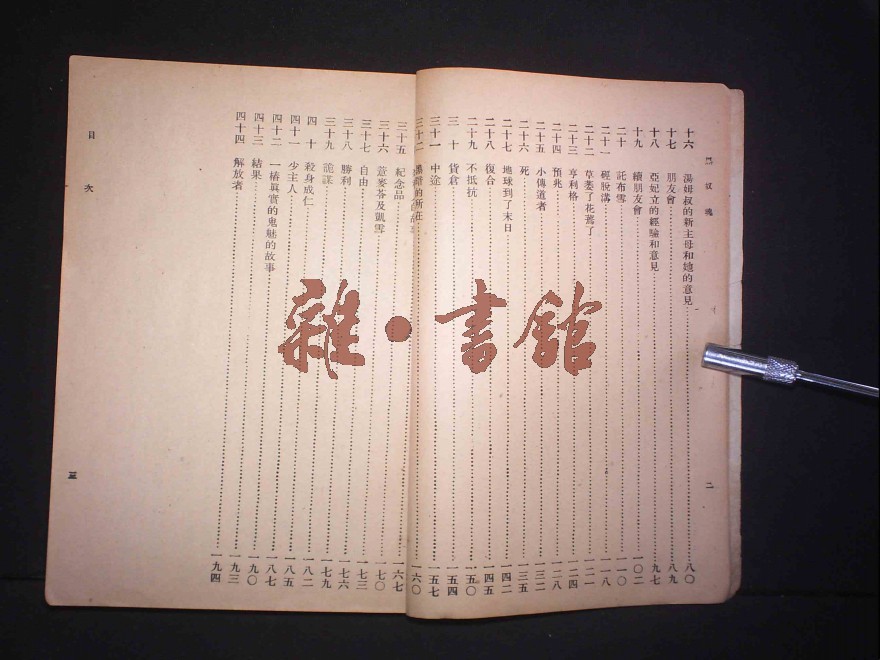 黑奴魂 二
十六 湯姆叔的新主母和她的意見 八〇
十七 朋友會 八九
十八 亞妃立的經驗和意見 九七
十九 續朋友會 一〇二
二十 託布雪 一一〇
二十一 硬脫溝 一一八
二十二 草萎了花蔫了 一二一
二十三 亨利格 一二四
二十四 預兆 一二八
二十五 小傳道者 一三二
二十六 死 一三五
二十七 地球到了末日 一四二
二十八 復合 一四五
二十九 不抵抗 一五〇
三十 貨倉 一五四
三十一 中途 一五七
三十二 黑暗的所在 一六〇
故事 一六七
三十五 紀念品 一七〇
三十六 薏麥苓及凱雪 一七三
三十七 自由 一七六
三十八 勝利 一七九
三十九 詭謀 一八二
四十 殺身成仁 一八五
四十一 少主人 一八七
四十二 一樁眞實的鬼魅的故事 一九〇
四十三 結果 一九三
四十四 解放者 一九四
目次 三
雜·書館